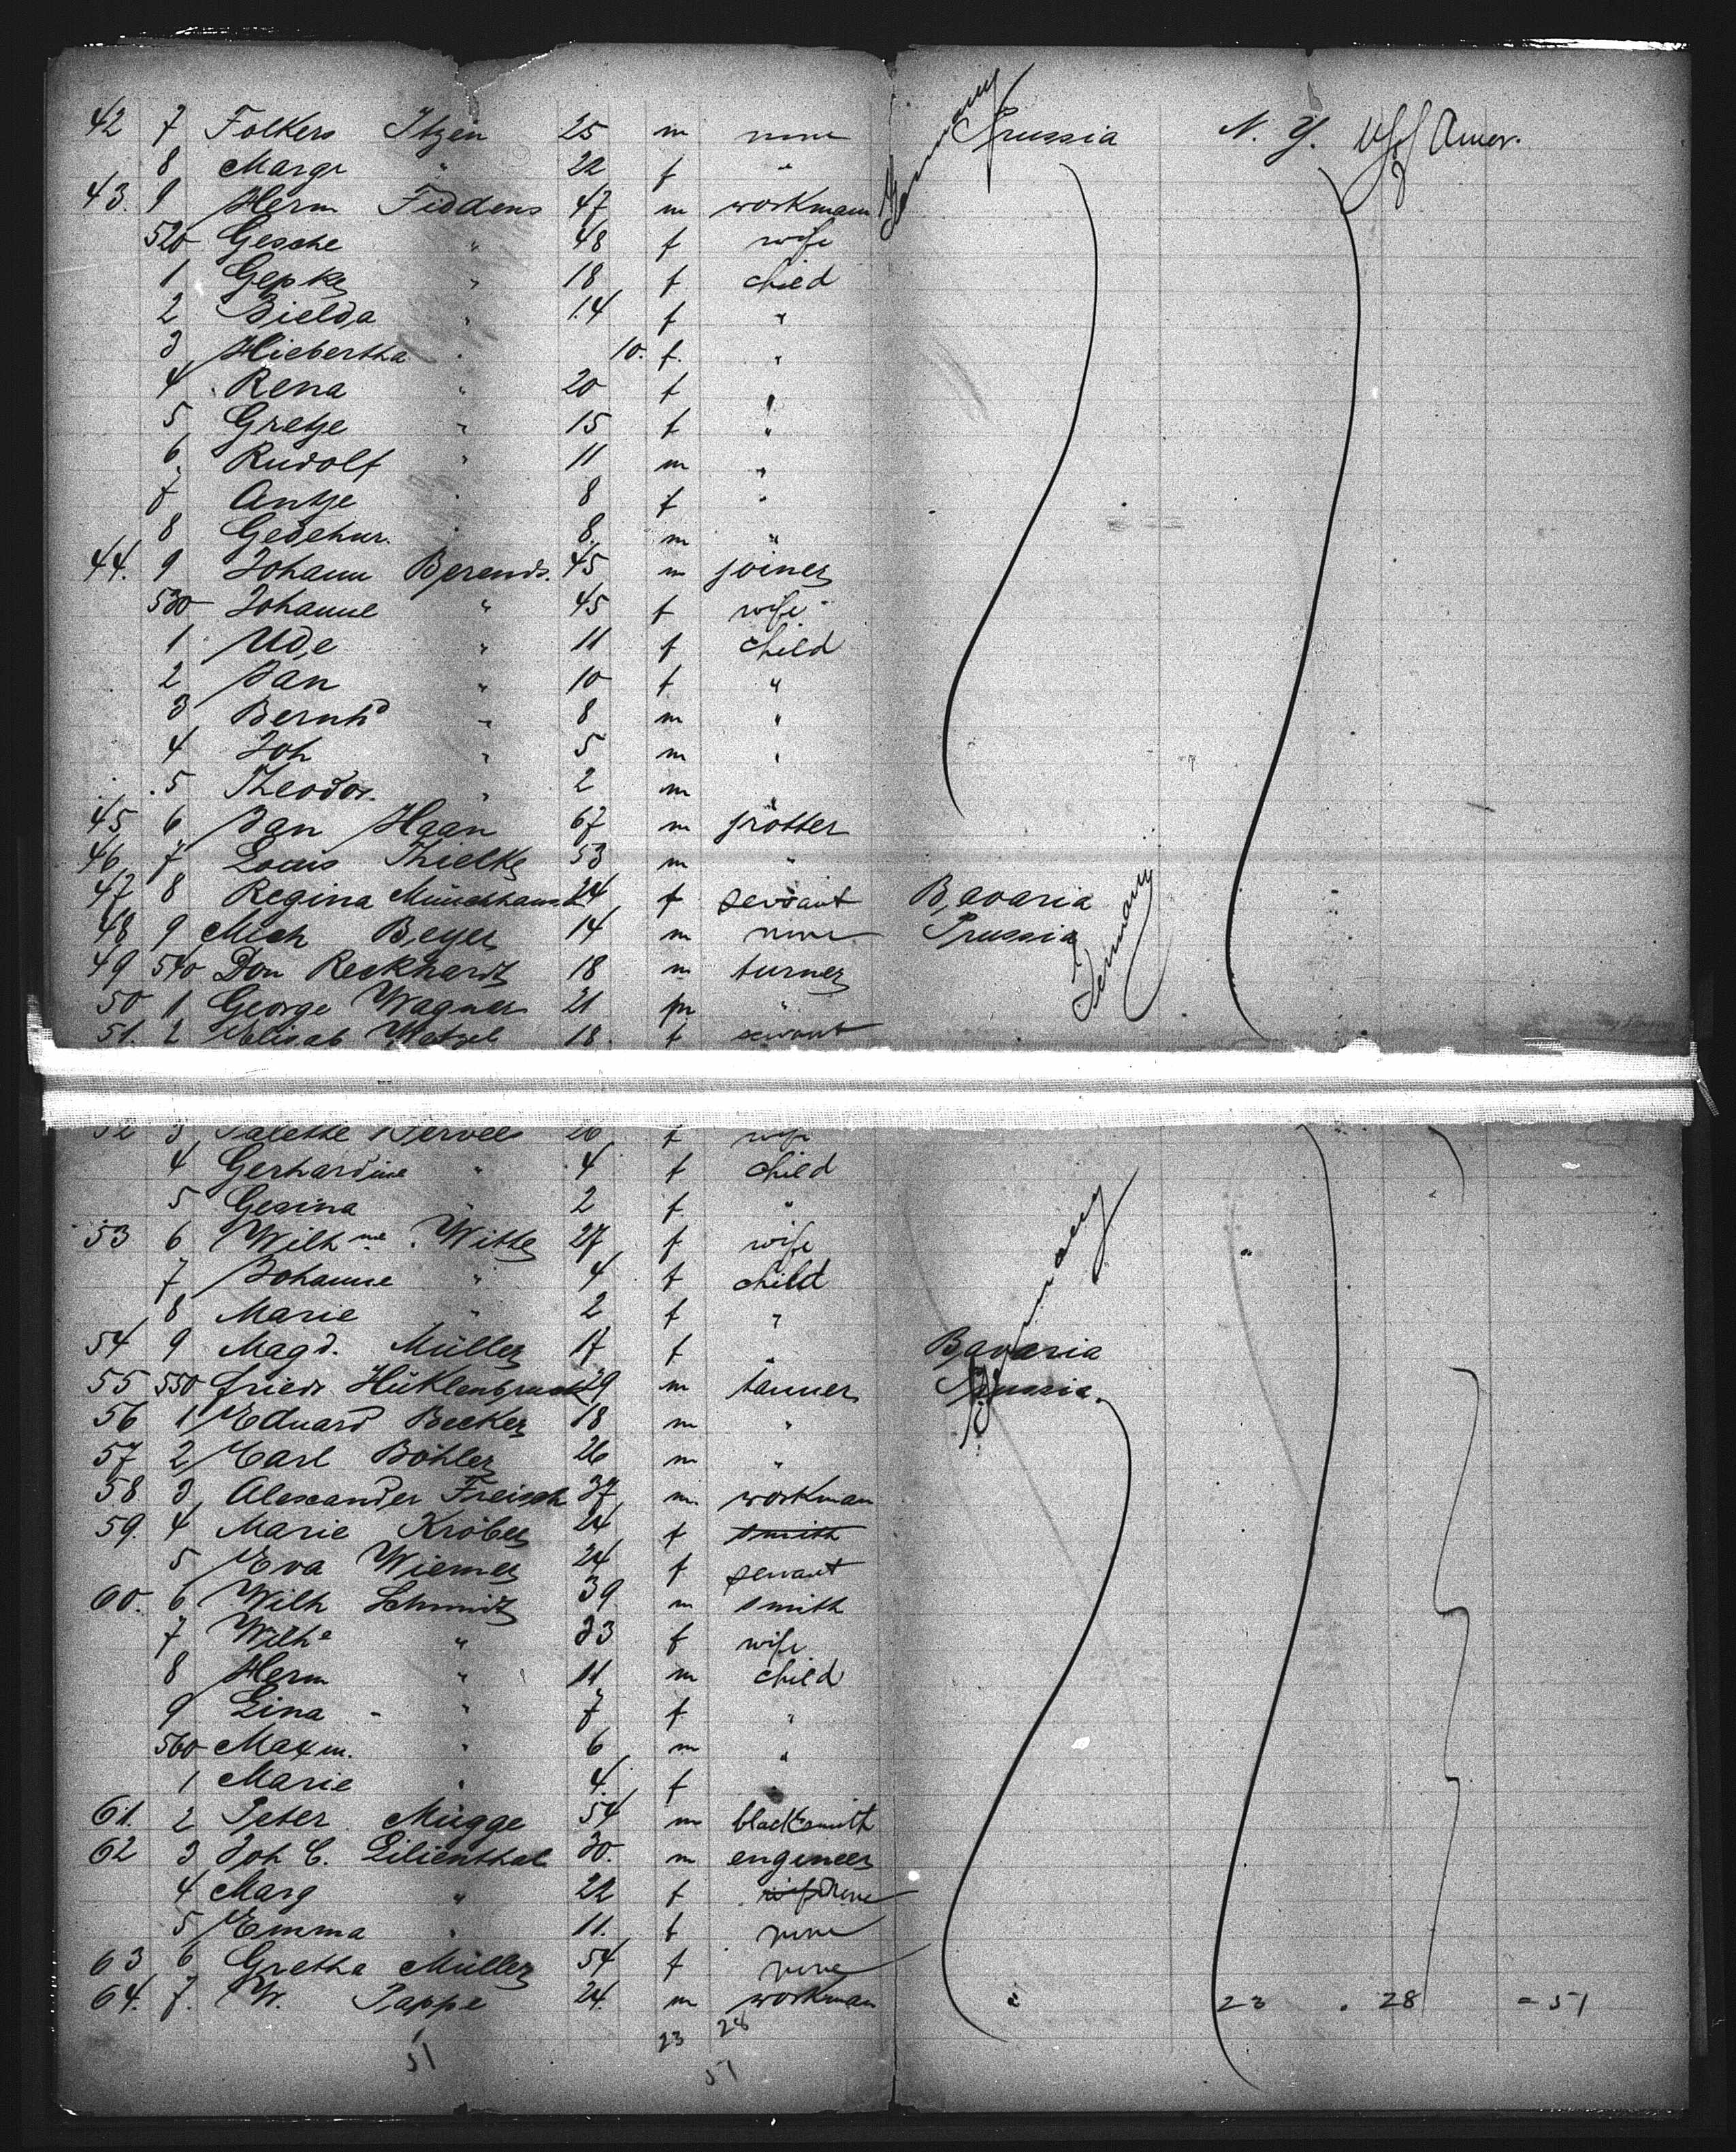 42 7 Folkers Itzen 25 m none Germany Prussia N. Y. U S of Amer.
8 Margr " 22 f "
43. 9 Herm Fiddens 47 m workmann
520 Gesche " 48 f wife
1 Gepke " 18 f child
2 Bielda " 14 f "
3 Hiebertha " 10. f. "
4 Rena " 20 f "
5 Gretje " 15 f "
6 Rudolf " 11 m "
7 Antje " 8 f "
8 " 8. m "
44. 9 Johann Berends. 45 m joiner
530 Johanne " 45 f wife
1 Ude " 11 f child
2 Jan " 10 f "
3 Bernhd " 8 m "
4 Joh " 5 m "
5 Theodor. " 2 m "
45 6 Jan Haan 67 m
46 7 Louis Thielke 53 m "
47 8 Regina Münchhaus 24 f servant Bavaria
48 9 Mich Beyer 14 m none Prussia Germany
49 540 Reckhardt 18 m turner
50 1 George Wagner 21 m "
51. 2 Elisab Watzel 18. f servant
52 3 26 f wife
4 Gerhardine " 4 f child
5 Gesina " 2 f "
53 6 Wilhme. Witte 27 f wife Germany
7 Johanne " 4 f child "
8 Marie " 2 f "
54 9 Magd. Müller 17 f " Bavaria
55 550 Friedr 29 m tanner Prussia.
56 1 Eduard Becker 18 m "
57 2 Carl Böhler 26 m "
58 3 Alexander Freisch 37 m workman
59. 4 Marie Kröber 24 f smith
5 Eva Wiemer 24 f servant
60. 6 Wilh Schmidt 39 m smith
7 Wilhe " 33 f wife
8 Herm " 11 m child
9 Lina " 7 f "
560 Maxm. " 6 m "
1 Marie " 4 f "
61. 2 Peter Mügge 54 m blacksmith
62 3 Joh C. Lilienthal 30. m engineer
4 Marg " 22 f wife none
5 Emma " 11. f none
63 6 Gretha Müller 54 f none
64. 7. W. Pappe 24. m workman 23 . 28 = 51
23 28
51 51